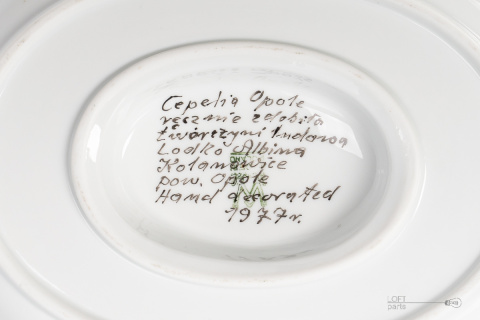 Cepelia Opole
ręcznie zdobiła
twórczyni ludowa
Lodko Albina
Kolanowice
pow. Opole
Hand decorated
1977r.
LOFT
parts